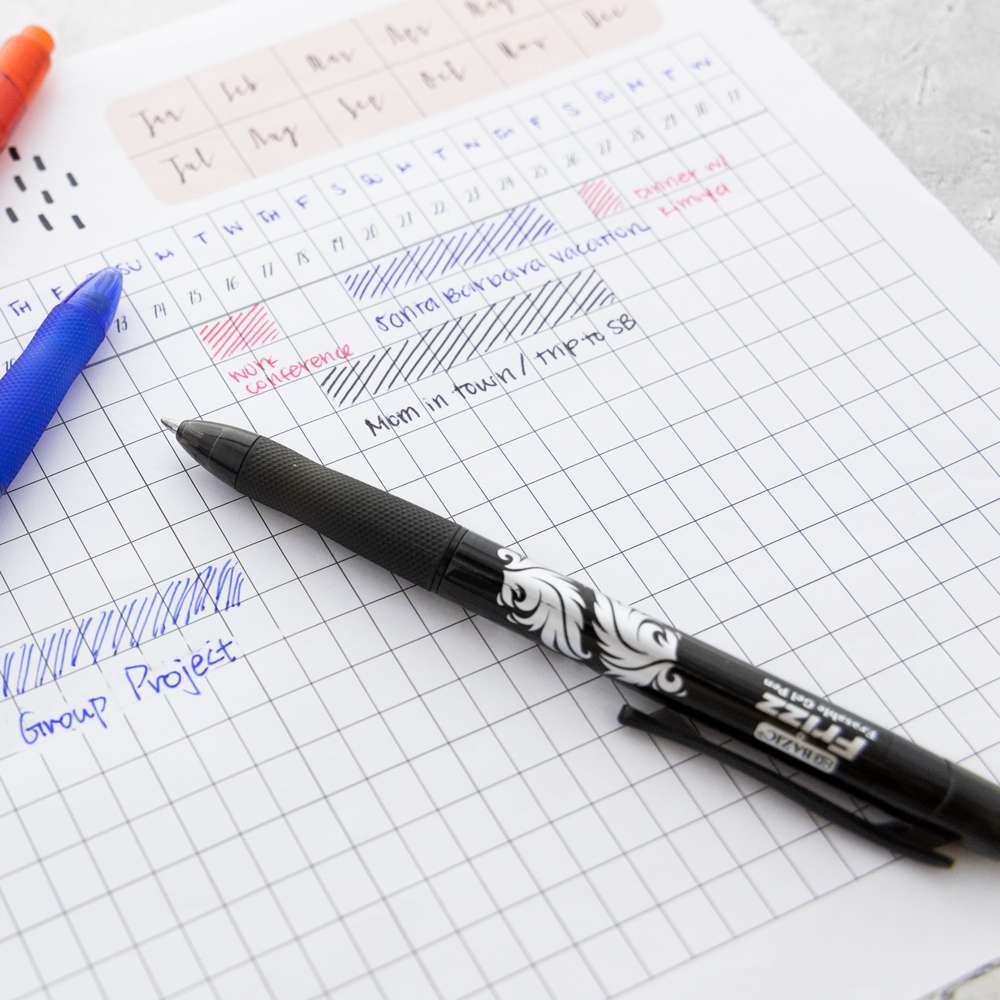 Jan Feb Mar Apr May
Jul Aug Sep Oct Nov Dec
TH F SU M T W TH F S SU M T W TH F S SU M T W
13 14 15 16 17 18 19 20 21 22 23 24 25 26 27 28 29 30 31
Dinner w/
Kimiya
Santa Barbara vacation
work
conference
Mom in town / trip to SB
Group Project
Erasable Gel Pen
Frizz
BAZIC